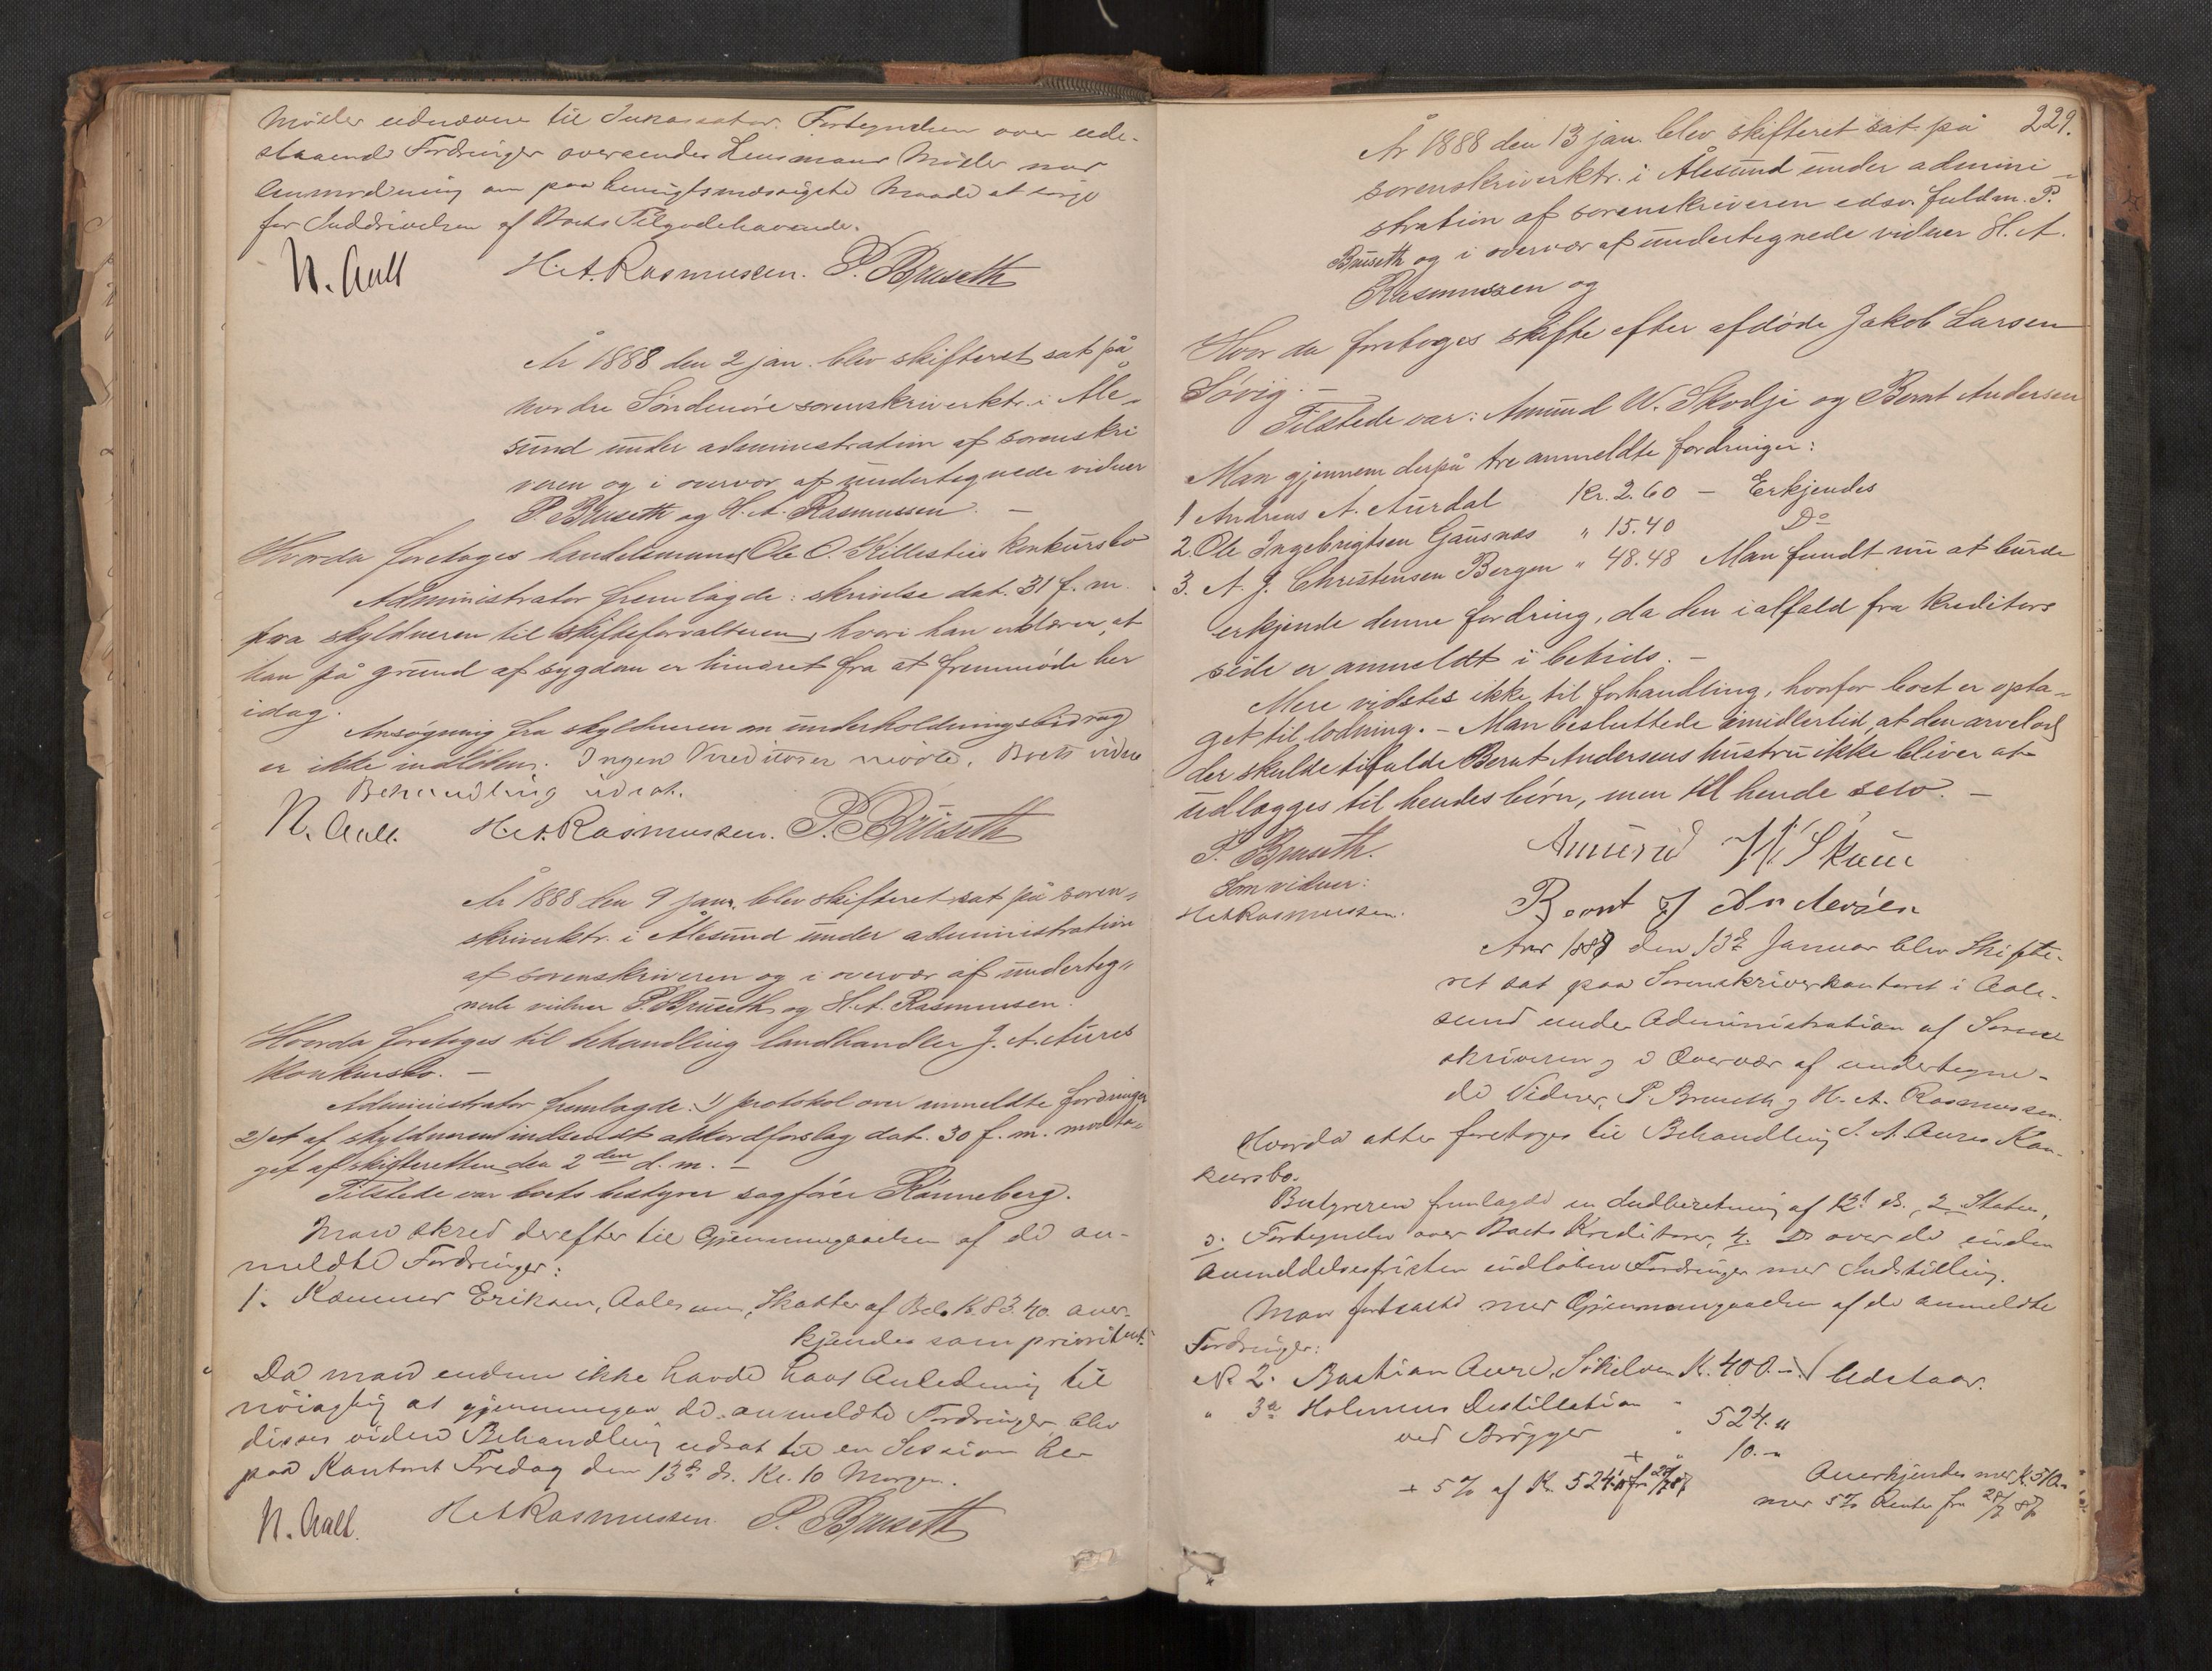 Møller udnævnes til Inkassator. Fortegnelsen over ude-
staaende Fordringer oversendes Lensmand Møller med
Anmodning om paa hensigtsmæssigste Maade at sørge
for Inddrivelsen af Boets Tilgodehavende.
N. Aall H. A. Rasmussen. P. Bruseth
År 1888 den 2 jan. blev skifteret sat på
nordre Søndmøre sorenskriverktr. i Åle-
sund under administration af sorenskri
veren og i overvær af undertegnede vidner
P. Bruseth og H. A. Rasmussen. —
Hvorda foretoges handelsmand Ole O. konkursbo
Administrator fremlagde: skrivelse dat. 31 f. m.
fra skyldneren til skifteforvalteren, hvori han erklærer, at
han på grund af sygdom er hindret fra at fremmøde her
idag.
Ansøgning fra skyldneren om underholdningsbidrag
er ikke indløben. Ingen Kreditorer mødte. Boets videre
Behandling udsat.
N. Aall. H. A. Rasmussen. P. Bruseth
År 1888 den 9 janr. blev skifteret sat på soren-
skriverktr. i Ålesund under administration
af sorenskriveren og i overvær af underteg-
nede vidner P. Bruseth og H. A. Rasmussen.
Hvorda foretoges til behandling landhandler J. A. Aures
Konkursbo. —
Administrator fremlagde: 1) protokol over anmeldte fordringer
2) et af skyldneren indsendt akkordforslag dat. 30 f. m. modta-
get af skifteretten den 2den d. m. —
Tilstede var boets bestyrer sagfører Rønneberg.
Man skred derefter til Gjennemgaaelsen af de an-
meldte Fordringer:
1. Kæmner Eriksen, Aalesund, Skatter af Bel. K. 83.40 aner-
kjendes som prioritert.
Da man endnu ikke havde havt Anledning til
nøiagtig at gjennemgaa de anmeldte Fordringer, blev
disses videre Behandling udsat til en Session her
paa Kontoret Fredag den 13de ds. Kl. 10 Morgen.
N. Aall. H. A. Rasmussen. P. Bruseth
229.
År 1888 den 13 jan. blev skifteret sat på
sorenskriverktr. i Ålesund under admini-
stration af sorenskriveren edsv. fuldm. P.
Bruseth og i overvær af undertegnede vidner H. A.
Rasmussen og
Hvor da foretoges skifte efter afdøde Jakob Larsen
Søvig. —
Tilstede var: Amund W. Skodje og Bernt Andersen
Man gjennem derpå tre anmeldte fordringer:
1 Andreas A. Aurdal Kr. 2.60 — Erkjendes
2. Ole Ingebrigtsen Gausnæs " 15.40 Do
3. A. J. Christensen Bergen " 48.48 Man fandt nu at burde
erkjende denne fordring, da den ialfald fra kreditors
side er anmeldt i betids. —
Mere vidstes ikke til forhandling, hvorfor boet er opta-
get til lodning. — Man besluttede imidlertid, at den arvelod
der skulde tilfalde Bernt Andersens hustru ikke bliver at
udlægges til hendes børn, men til hende selv. —
P. Bruseth. Amund
Som vidner: Bernt J Andersen
H. A. Rasmussen.
Aar 1888 den 13de Januar blev Skifte-
ret sat paa Sorenskriverkontoret i Aale-
sund under Administration af Soren
skriveren og i Overvær af undertegne-
de Vidner, P. Bruseth og H. A. Rasmussen.
Hvorda atter foretoges til Behandling J. A. Aures Kon-
kursbo.
Bestyreren fremlagde en Indberetning af 12 ds., 2. Status,
3. Fortegnelse over Boets Kreditorer, 4. Do over de inden
Anmeldelsesfristen indløbne Fordringer med Indstilling.
Man fortsatte med Gjennemgaaelsen af de anmeldte
Fordringer:
No 2. Bastian Aure, Søkelven K. 400.— Udstaar.
" 3a Holmens Destillation
ved Brøgger " 524."
+ " 10.—
+ 5% af K. 524." fr 28/7 87 Anerkjendes med K.
med 5% Renter fra 28/7 87